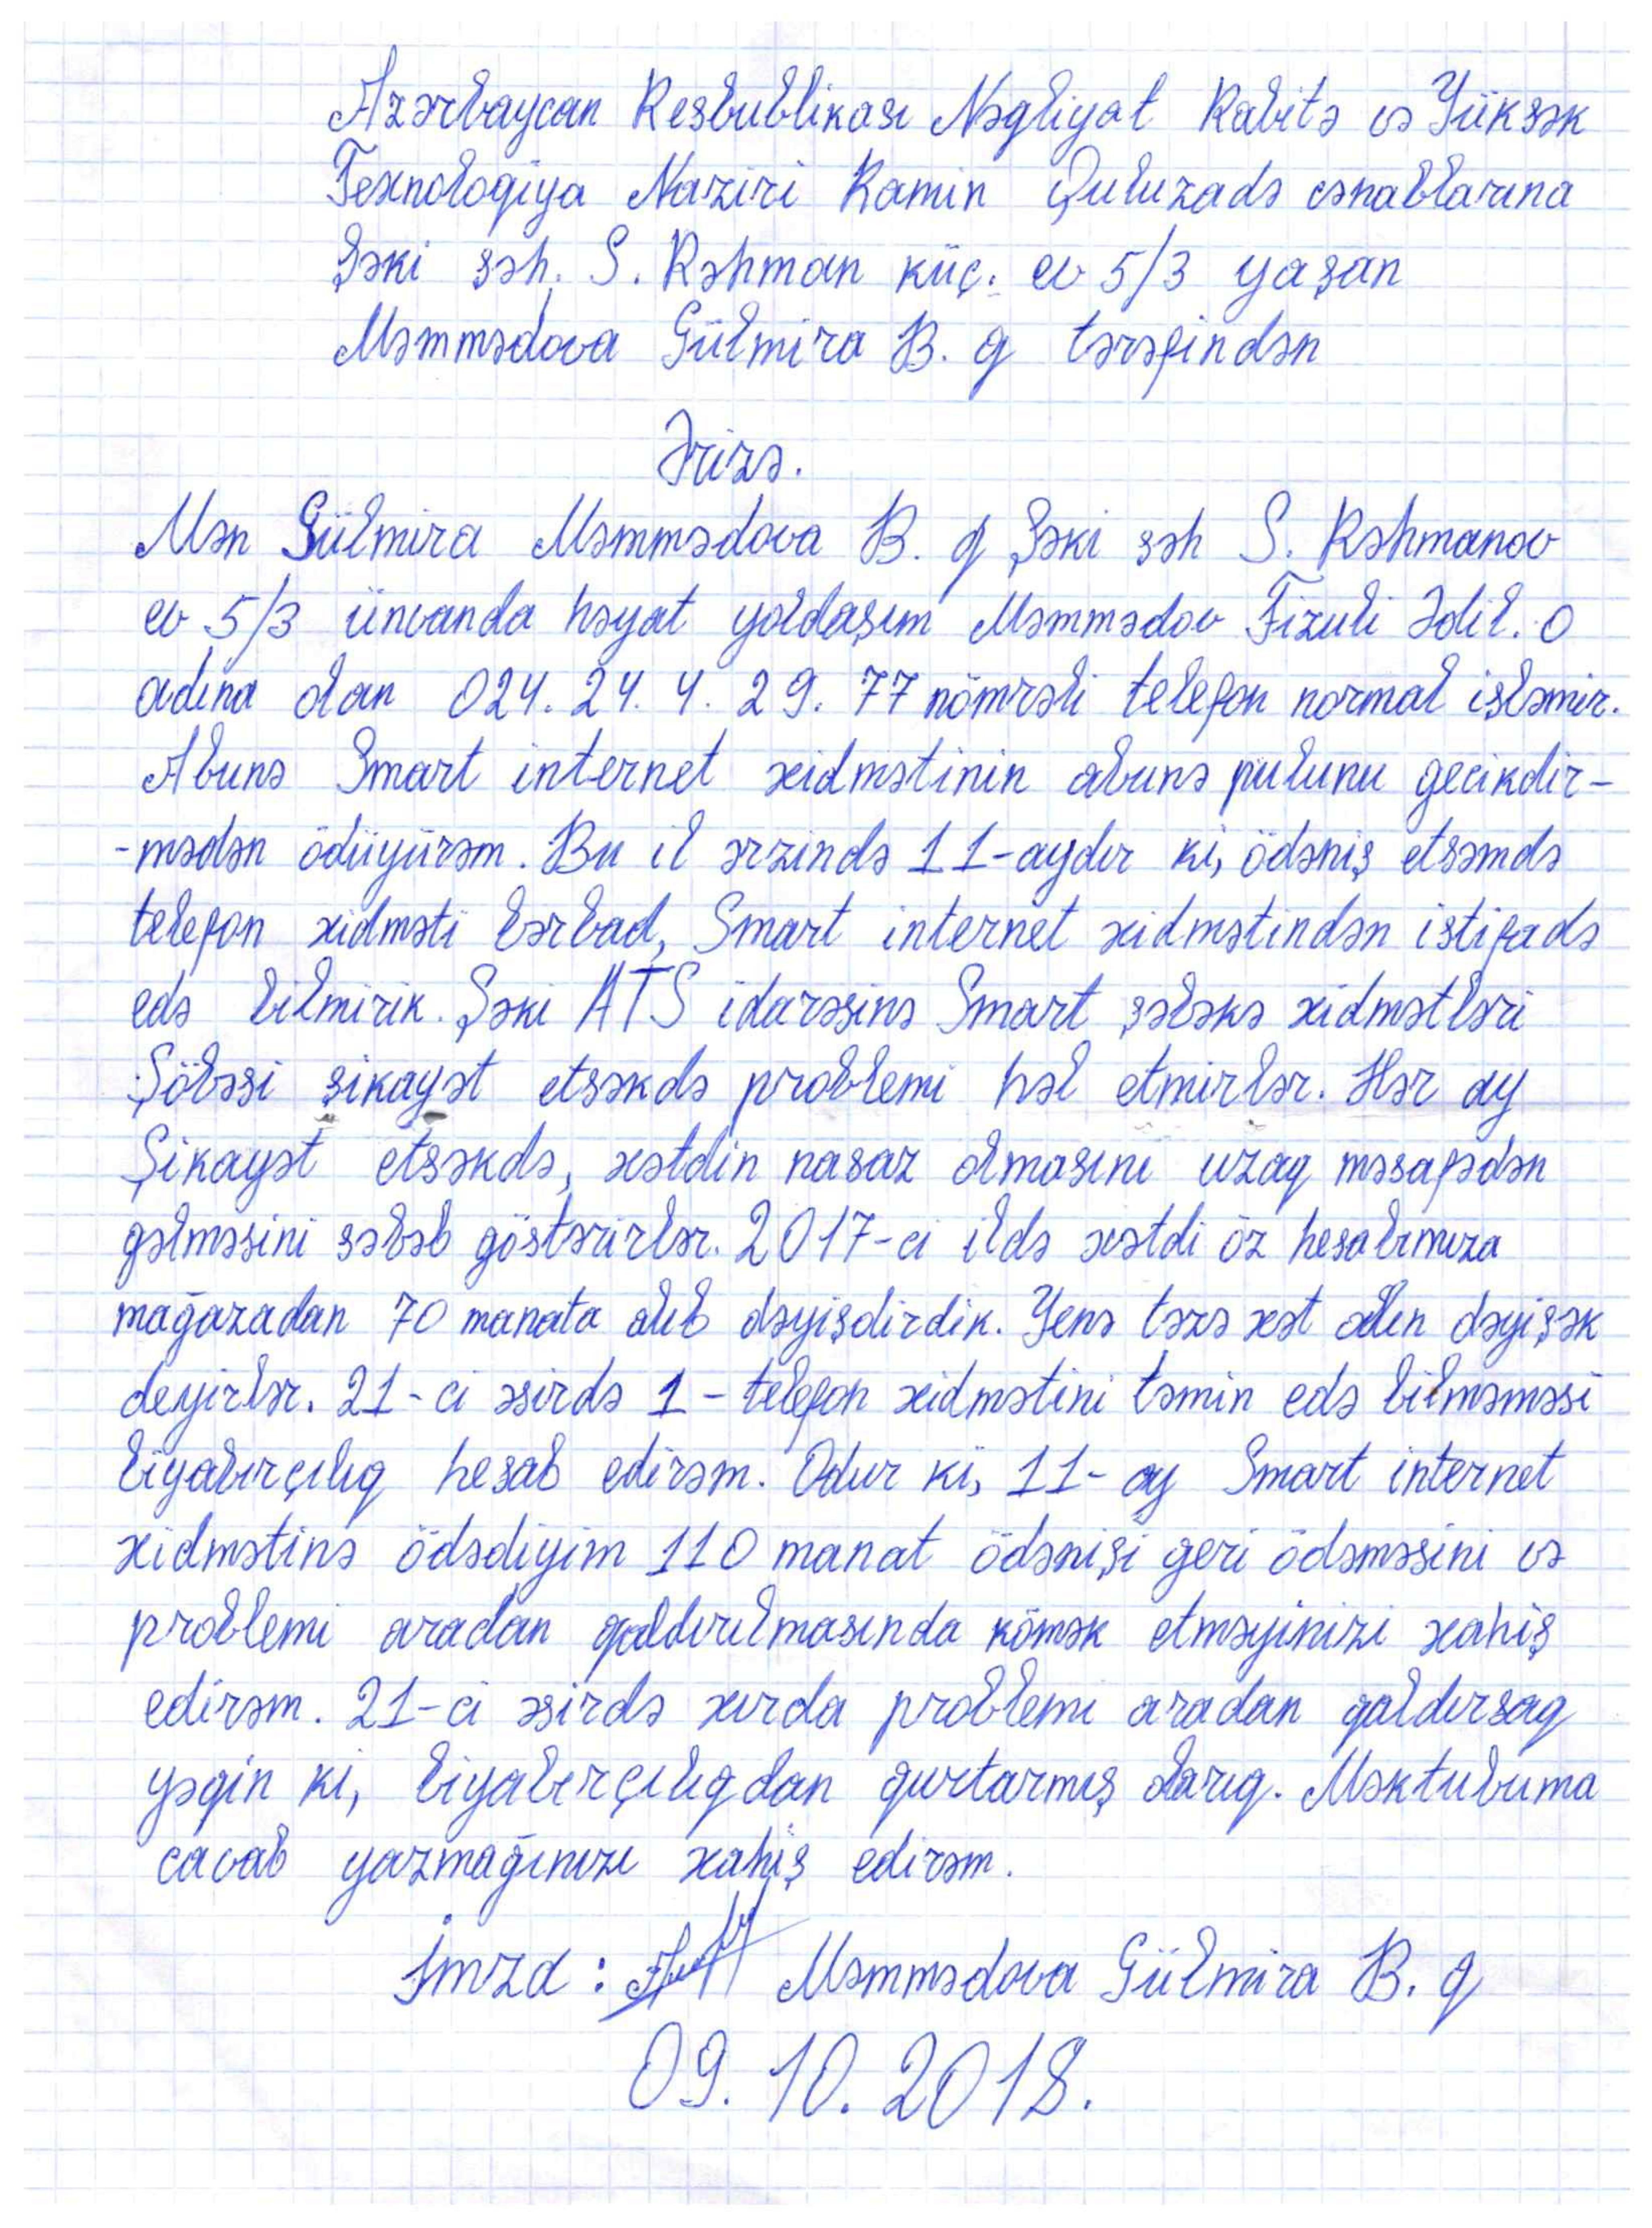 Azərbaycan Resbublikası Nəqliyat Rabitə və Yüksək
Texnologiya Naziri Ramin Quluzadə cənablarına
Şəki şəh. S. Rəhman küç. ev 5/3 yaşan
Məmmədova Gülmira B. q tərəfindən
Ərizə.
Mən Gülmira Məmmədova B. q Şəki şəh S. Rəhmanov
ev 5/3 ünvanda həyat yoldaşım Məmmədov Fizuli Ədil. O
adına olan 024. 24. 4. 29. 77 nömrəli telefon normal isləmir.
Abunə Smart internet xidmətinin abunə pulunu gecikdir-
-mədən ödüyürəm. Bu il ərzində 11-aydır ki, ödəniş etsəmdə
telefon xidməti bərbad, Smart internet xidmətindən istifadə
edə bilmirik. Şəki ATS idarəsinə Smart şəbəkə xidmətləri
Şöbəsi şikayət etsəkdə problemi həl etmirlər. Hər ay
Şikayət etsəkdə, xətdin nasaz olmasını uzaq məsafədən
gəlməsini səbəb göstərirlər. 2017-ci ildə xətdi öz hesabımıza
mağazadan 70 manata alıb dəyişdirdik. Yenə təzə xət alın dəyişək
deyirlər. 21-ci əsirdə 1-telefon xidmətini təmin edə bilməməsi
biyabırçılıq hesab edirəm. Odur ki, 11-ay Smart internet
xidmətinə ödədiyim 110 manat ödənişi geri ödəməsini və
problemi aradan qaldırılmasında kömək etməyinizi xahiş
edirəm. 21-ci əsirdə xırda problemi aradan qaldırsaq
yəqin ki, biyabırçılıqdan qurtarmış olarıq. Məktubuma
cavab yazmağınızı xahiş edirəm.
İmza: Məmmədova Gülmira B. q
09. 10. 2018.